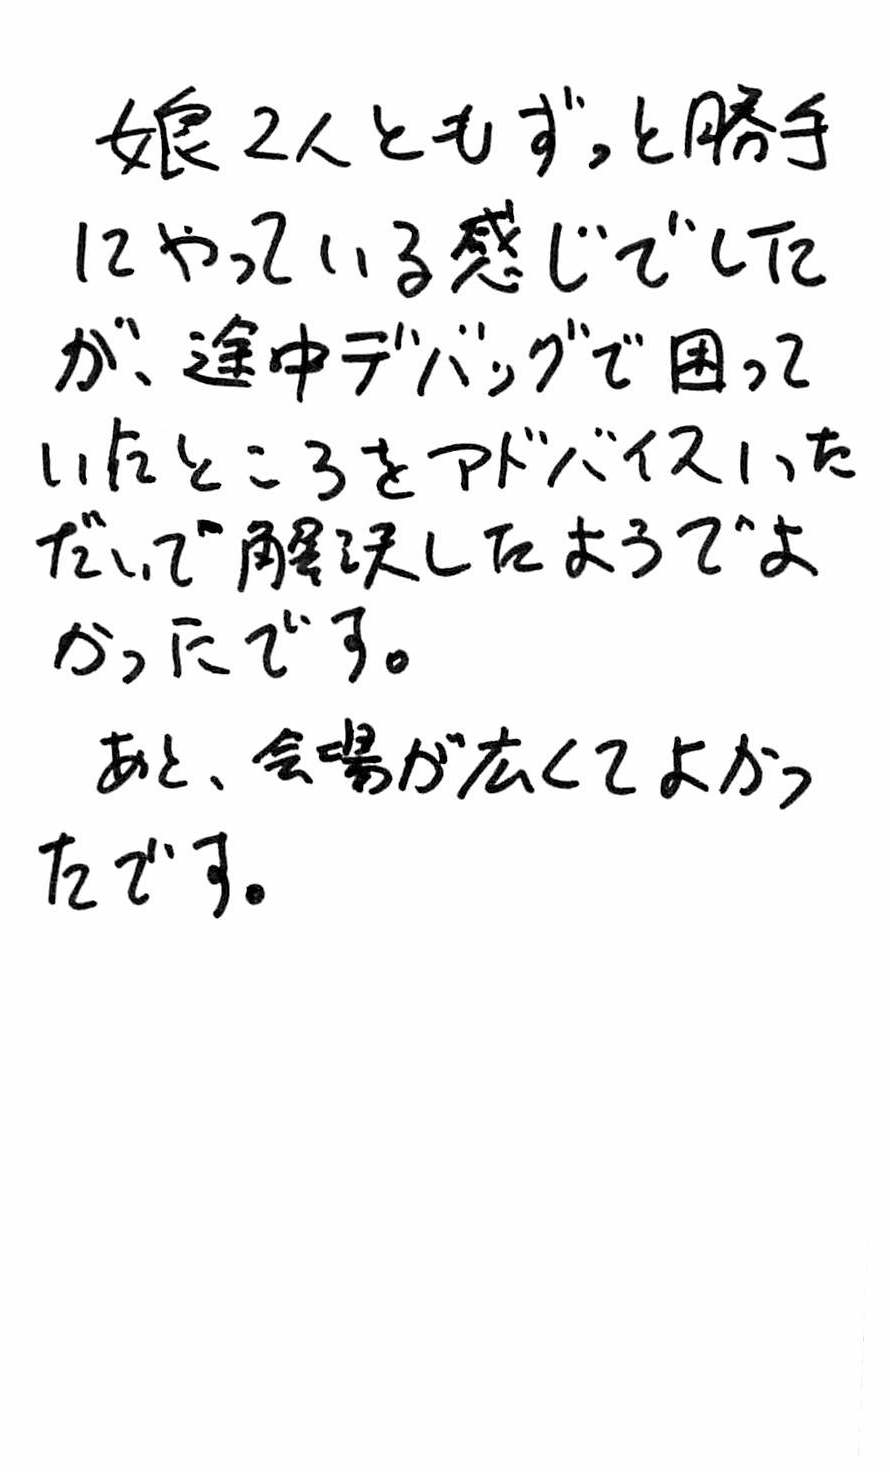 娘2人ともずっと勝手
にやっている感じでした
が、途中デバッグで困って
いたところをアドバイスいった
だいで解決したようでよ
かったです。
あと、会場が広くてよかっ
たです。